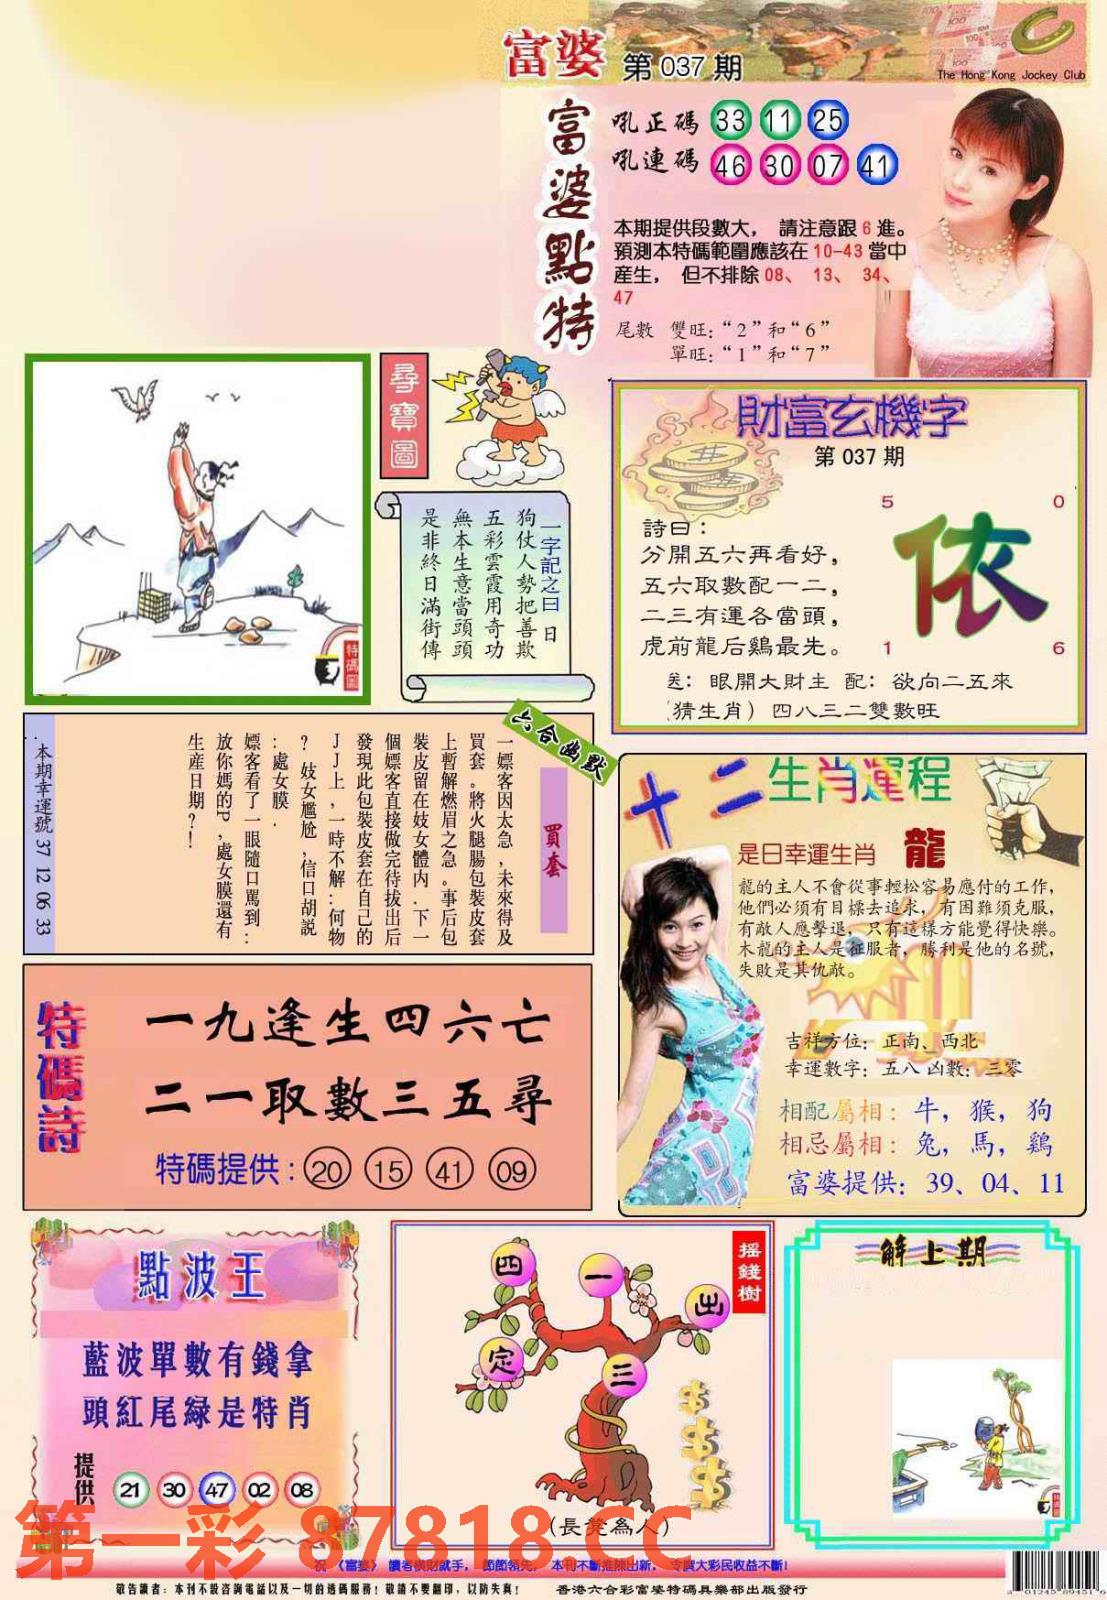 富婆 第 037 期
The Hong Kong Jockey Club
富婆點特
吼正碼 33 11 25
吼連碼 46 30 07 41
本期提供段數大， 請注意跟 6 進。
預測本特碼範圍應該在 10-43 當中
産生， 但不排除 08、 13、 34、
47
尾數 雙旺：“2”和“6”
單旺：“1”和“7”
尋寶圖
特碼圖
一字記之曰 日
狗仗人勢把善欺
五彩雲霞用奇功
無本生意當頭頭
是非終日滿街傳
財富玄機字
第 037 期
詩曰：
分開五六再看好，
五六取數配一二，
二三有運各當頭，
虎前龍后鷄最先。
5 0
依
1 6
送： 眼開大財主 配： 欲向二五來
（猜生肖）四八三二雙數旺
六合幽默
買套
一嫖客因太急，未來得及
買套。將火腿腸包裝皮套
上暫解燃眉之急。事后包
裝皮留在妓女體内．下一
個嫖客直接做完待拔出后
發現此包裝皮套在自己的
JJ上，一時不解：何物
？妓女尷尬，信口胡説
：處女膜．
嫖客看了一眼隨口駡到：
放你媽的P，處女膜還有
生産日期？！
本期幸運號 37 12 06 33
十二生肖運程
是日幸運生肖 龍
龍的主人不會從事輕松容易應付的工作，
他們必須有目標去追求，有困難須克服，
有敵人應擊退，只有這樣方能覺得快樂。
木龍的主人是征服者，勝利是他的名號，
失敗是其仇敵。
吉祥方位： 正南、西北
幸運數字： 五八 凶數： 三零
相配屬相： 牛，猴，狗
相忌屬相： 兔，馬，鷄
富婆提供： 39、04、11
特碼詩
一九逢生四六亡
二一取數三五尋
特碼提供：20 15 41 09
點波王
藍波單數有錢拿
頭紅尾緑是特肖
提供 21 30 47 02 08
摇錢樹
四 一 出
定 三
(長凳為人)
解上期
第一彩 87818.CC
祝 《富婆》 讀者橫財就手， 節節領先， 本刊不斷推陳出新， 令廣大彩民收益不斷!
敬告讀者：本刊不設咨詢電話以及一切的透碼服務! 敬請不要翻印，以防失真!
香港六合彩富婆特碼具樂部出版發行